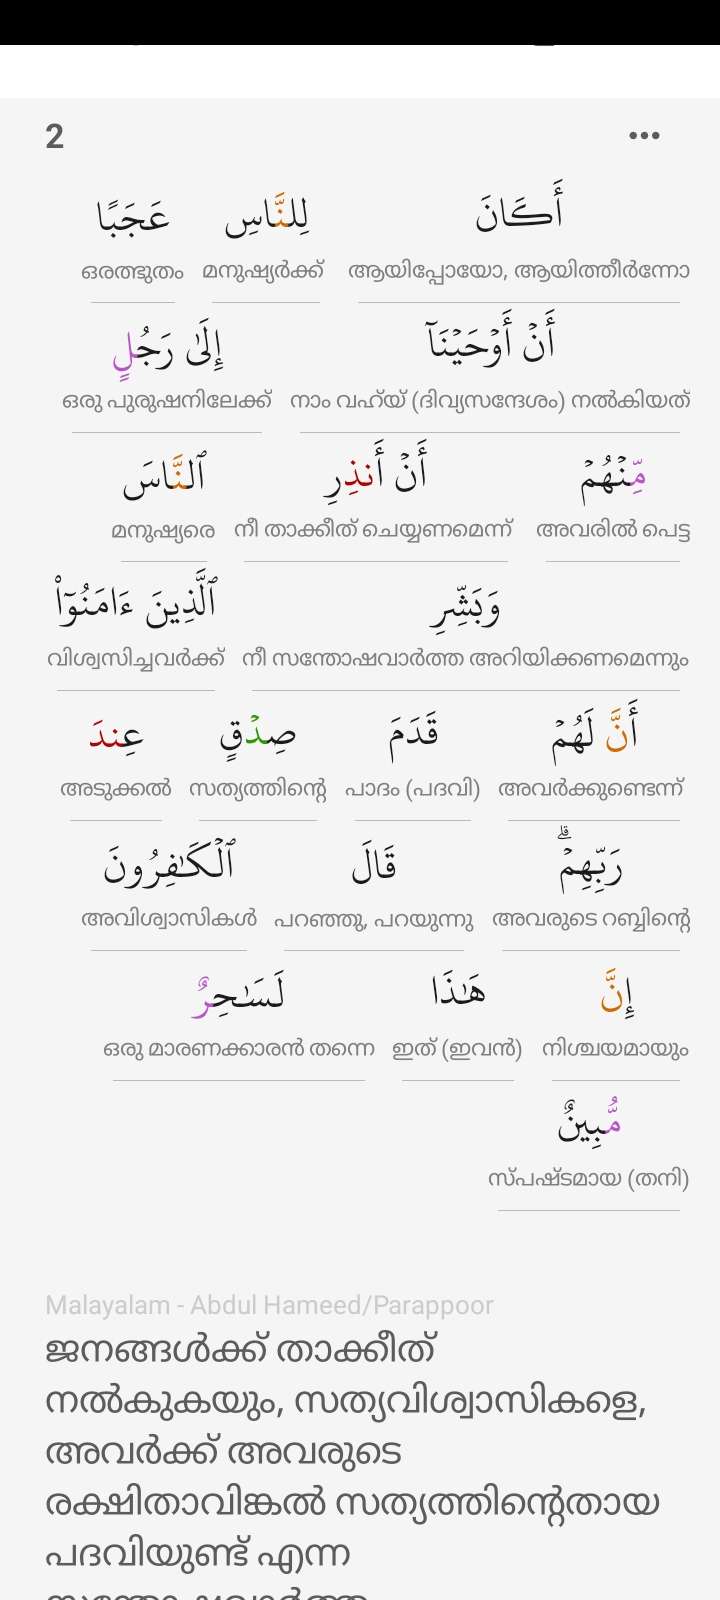 2
أَكَانَ لِلنَّاسِ عَجَبًا
ആയിപ്പോയോ, ആയിത്തീർന്നോ മനുഷ്യർക്ക് ഒരത്ഭുതം
أَنْ أَوْحَيْنَآ إِلَىٰ رَجُلٍ
നാം വഹ്‌യ് (ദിവ്യസന്ദേശം) നൽകിയത് ഒരു പുരുഷനിലേക്ക്
مِّنْهُمْ أَنْ أَنذِرِ ٱلنَّاسَ
അവരിൽ പെട്ട നീ താക്കീത് ചെയ്യണമെന്ന് മനുഷ്യരെ
وَبَشِّرِ ٱلَّذِينَ ءَامَنُوٓا۟
നീ സന്തോഷവാർത്ത അറിയിക്കണമെന്നും വിശ്വസിച്ചവർക്ക്
أَنَّ لَهُمْ قَدَمَ صِدْقٍ عِندَ
അവർക്കുണ്ടെന്ന് പാദം (പദവി) സത്യത്തിന്റെ അടുക്കൽ
رَبِّهِمْ ۗ قَالَ ٱلْكَـٰفِرُونَ
അവരുടെ റബ്ബിന്റെ പറഞ്ഞു, പറയുന്നു അവിശ്വാസികൾ
إِنَّ هَـٰذَا لَسَـٰحِرٌ
നിശ്ചയമായും ഇത് (ഇവൻ) ഒരു മാരണക്കാരൻ തന്നെ
مُّبِينٌ
സ്പഷ്ടമായ (തനി)
Malayalam - Abdul Hameed/Parappoor
ജനങ്ങൾക്ക് താക്കീത്
നൽകുകയും, സത്യവിശ്വാസികളെ,
അവർക്ക് അവരുടെ
രക്ഷിതാവിങ്കൽ സത്യത്തിന്റെതായ
പദവിയുണ്ട് എന്ന